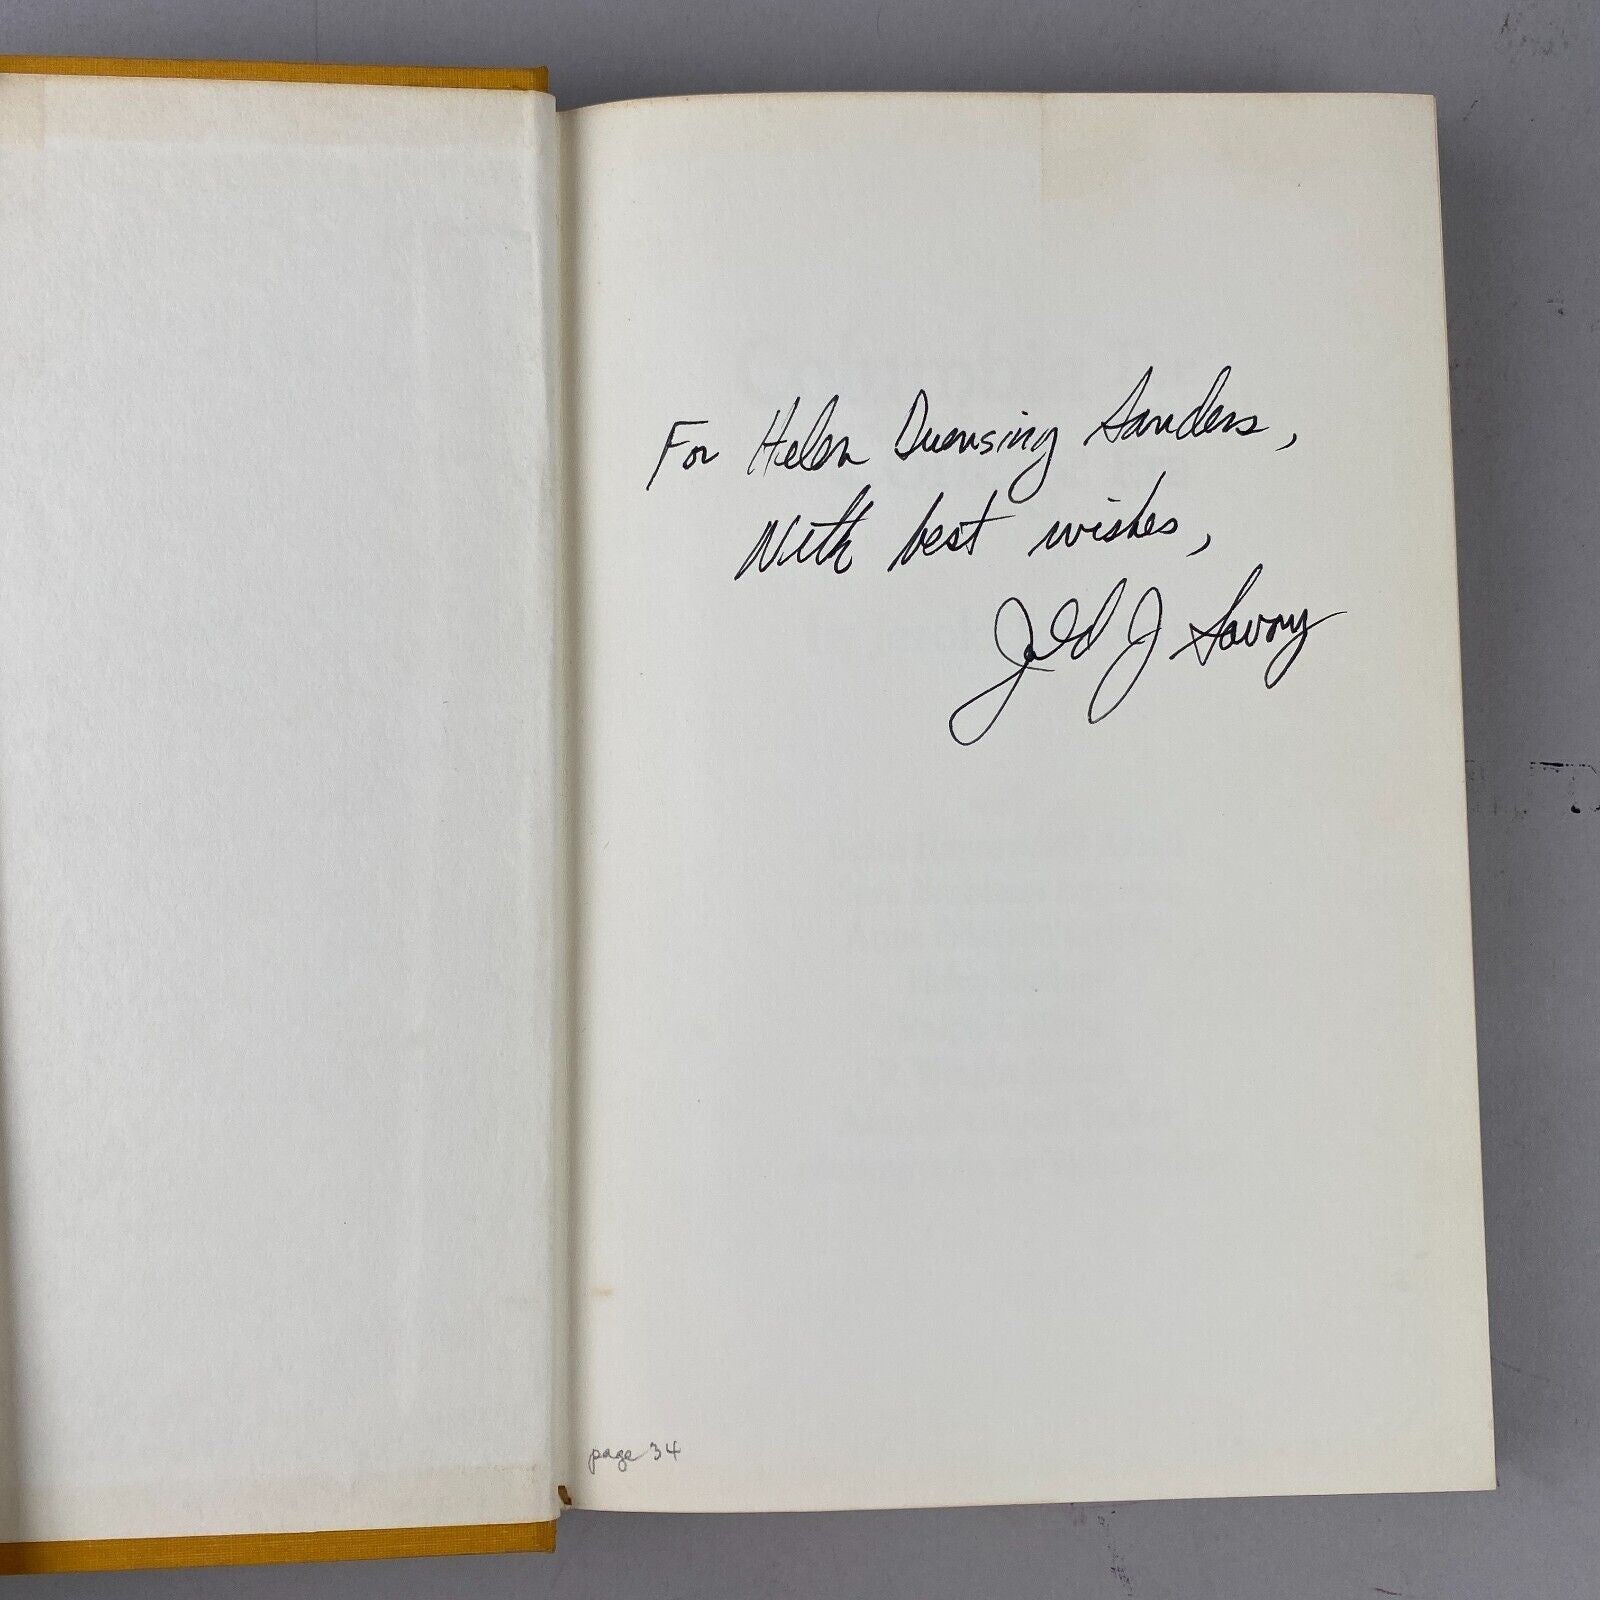 For Helen Duensing Sanders,
With best wishes,
J Savoy
page 34